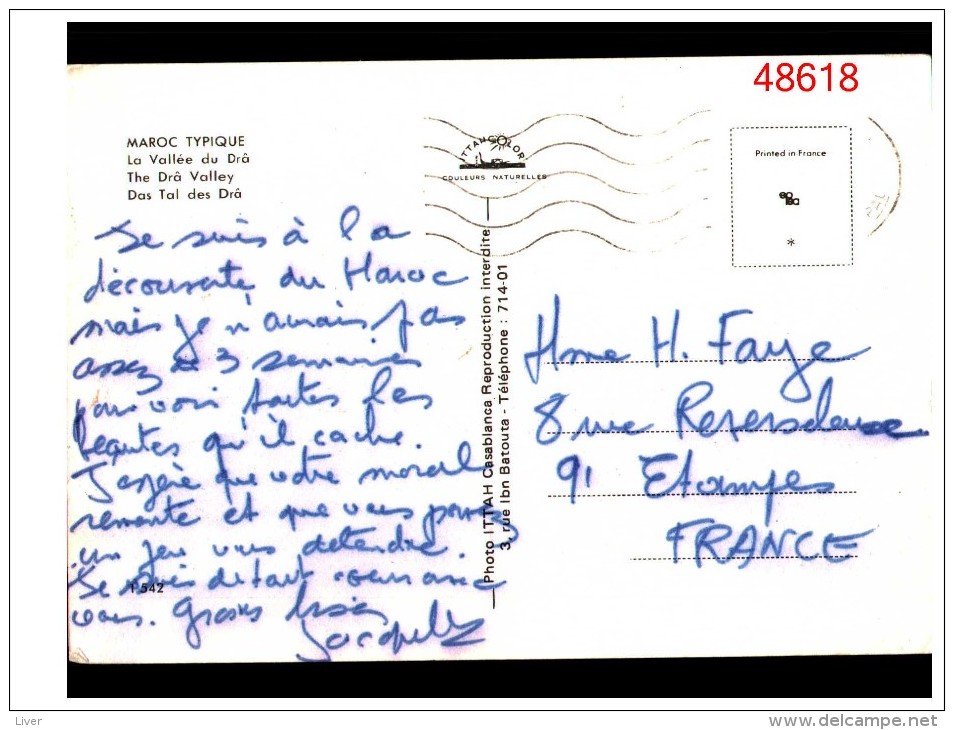 48618
MAROC TYPIQUE
La Vallée du Drâ
The Drâ Valley
Das Tal des Drâ
ITTAHCOLOR
COULEURS NATURELLES
Printed in France
*
Je suis à la
découverte du Maroc
mais je n'aurais pas
assez de 3 semaines
pour voir toutes les
beautés qu'il cache.
J'espère que votre moral
remonte et que vous pouvez
un peu vous détendre.
Je suis de tout coeur avec
vous. Grosses bises
Jacqueline
1 542
Photo ITTAH Casablanca Reproduction interdite
3, rue Ibn Batouta - Téléphone : 714-01
Mme H. Faye
8 rue
91 Etampes
FRANCE
Liver
www.delcampe.net